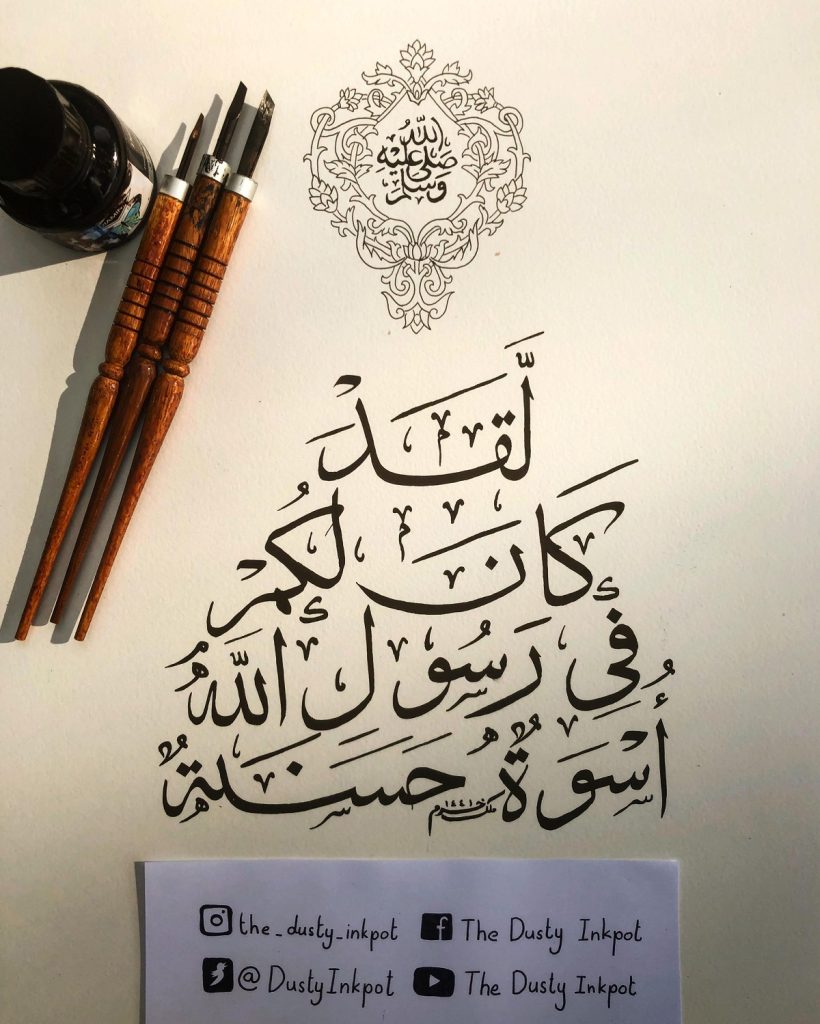 صَلَّى اللَّهُ عَلَيْهِ وَسَلَّمَ
لَّقَدْ
كَانَ لَكُمْ
فِي رَسُولِ اللَّهِ
أُسْوَةٌ حَسَنَةٌ
١٤٤١
the_dusty_inkpot The Dusty Inkpot
@DustyInkpot The Dusty Inkpot